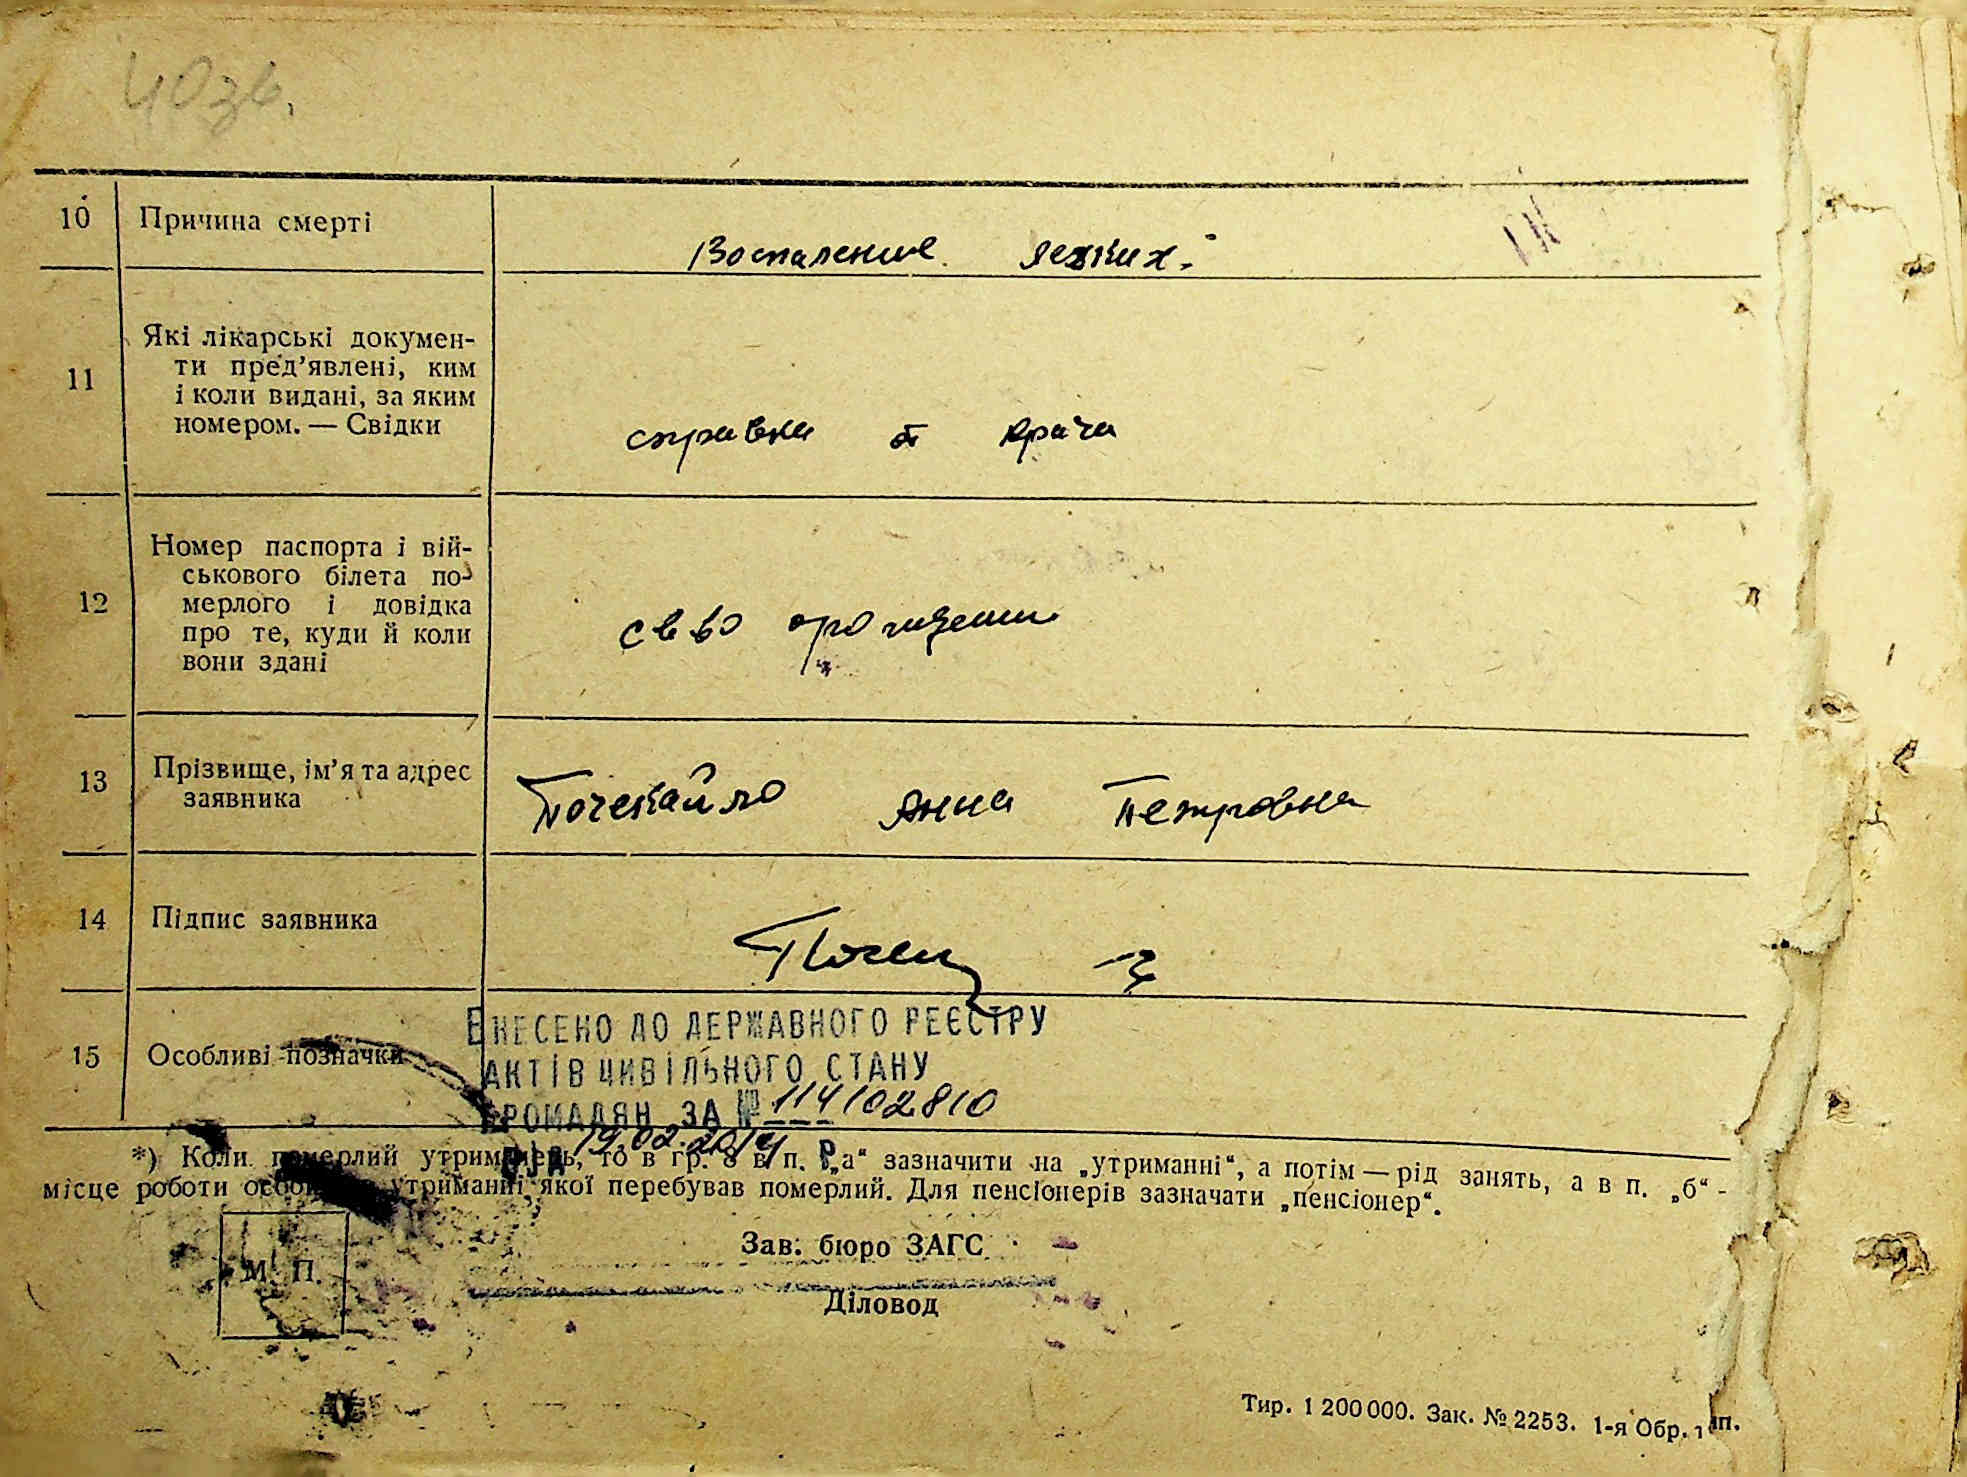 403б.
10 Причина смерті Воспаление легких.
11 Які лікарські докумен-
ти пред’явлені, ким
і коли видані, за яким
номером. — Свідки
справка от врача
12 Номер паспорта і вій-
ськового білета по-
мерлого і довідка
про те, куди й коли
вони здані
св во
13 Прізвище, ім’я та адрес
заявника
Почекайло Анна Петровна
14 Підпис заявника
15 Особливі позначки
ВНЕСЕНО ДО ДЕРЖАВНОГО РЕЄСТРУ
АКТІВ ЦИВІЛЬНОГО СТАНУ
ГРОМАДЯН ЗА № 114102810
ВІД 19.02.2014 Р.
*) Коли померлий утриманець, то в гр. 8 в п. „а“ зазначити на „утриманні“, а потім — рід занять, а в п. „б“ -
місце роботи особи, на утриманні якої перебував померлий. Для пенсіонерів зазначати „пенсіонер“.
Зав. бюро ЗАГС
М. П.
Діловод
Тир. 1 200 000. Зак. № 2253. 1-я Обр. тип.